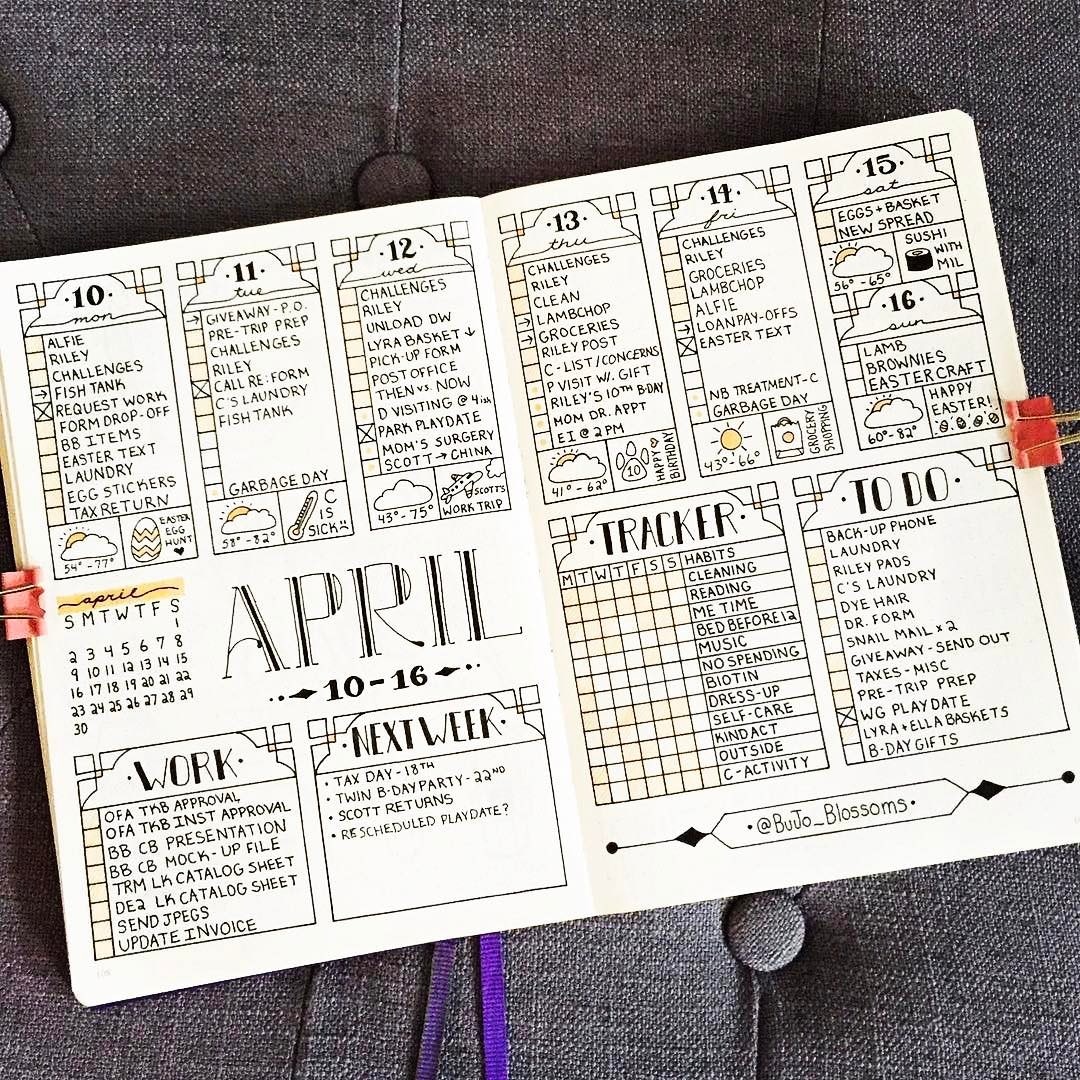 ·10·
mon
ALFIE
RILEY
CHALLENGES
FISH TANK
REQUEST WORK
FORM DROP-OFF
BB ITEMS
EASTER TEXT
LAUNDRY
EGG STICKERS
TAX RETURN
54°-77°
EASTER
EGG
HUNT
·11·
tue
GIVEAWAY-P.O.
PRE-TRIP PREP
CHALLENGES
RILEY
CALL RE: FORM
C'S LAUNDRY
FISH TANK
GARBAGE DAY
58°-82°
C
IS
SICK
·12·
wed
CHALLENGES
RILEY
UNLOAD DW
LYRA BASKET ↓
PICK-UP FORM
POST OFFICE
THEN vs. NOW
D VISITING @ 4ish
PARK PLAYDATE
MOM'S SURGERY
SCOTT → CHINA
43°-75°
SCOTT'S
WORK TRIP
april
S M T W T F S
1
2 3 4 5 6 7 8
9 10 11 12 13 14 15
16 17 18 19 20 21 22
23 24 25 26 27 28 29
30
APRIL
10-16
·WORK·
OFA TKB APPROVAL
OFA TKB INST APPROVAL
BB CB PRESENTATION
BB CB MOCK-UP FILE
TRM LK CATALOG SHEET
DE2 LK CATALOG SHEET
SEND JPEGS
UPDATE INVOICE
·NEXT WEEK·
• TAX DAY-18TH
• TWIN B-DAY PARTY-22ND
• SCOTT RETURNS
• RESCHEDULED PLAYDATE?
·13·
thu
CHALLENGES
RILEY
CLEAN
LAMBCHOP
GROCERIES
RILEY POST
C-LIST/CONCERNS
P VISIT W/. GIFT
RILEY'S 10TH B-DAY
MOM DR. APPT
EI @ 2PM
41°-62°
10
HAPPY
BIRTHDAY
·14·
fri
CHALLENGES
RILEY
GROCERIES
LAMBCHOP
ALFIE
LOAN PAY-OFFS
EASTER TEXT
NB TREATMENT-C
GARBAGE DAY
43°-66°
GROCERY
SHOPPING
·15·
sat
EGGS + BASKET
NEW SPREAD
56°-65°
SUSHI
WITH
MIL
·16·
sun
LAMB
BROWNIES
EASTER CRAFT
60°-82°
HAPPY
EASTER!
·TRACKER·
M T W T F S S HABITS
CLEANING
READING
ME TIME
BED BEFORE 12
MUSIC
NO SPENDING
BIOTIN
DRESS-UP
SELF-CARE
KIND ACT
OUTSIDE
C-ACTIVITY
·TO DO·
BACK-UP PHONE
LAUNDRY
RILEY PADS
C'S LAUNDRY
DYE HAIR
DR. FORM
SNAIL MAIL x 2
GIVEAWAY-SEND OUT
TAXES-MISC
PRE-TRIP PREP
WG PLAYDATE
LYRA + ELLA BASKETS
B-DAY GIFTS
·@BuJo_Blossoms·